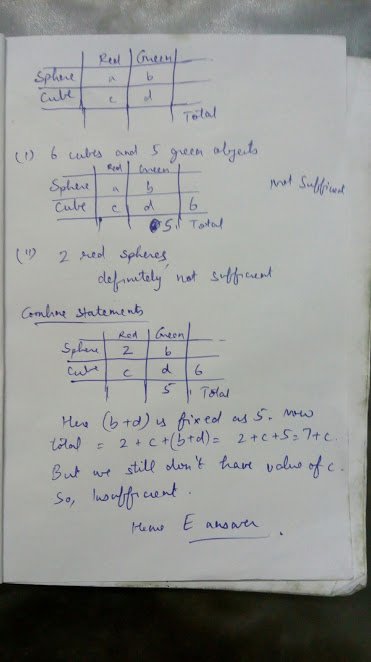 Red Green
Sphere a b
Cube c d
Total
(i) 6 cubes and 5 green objects
Red Green
Sphere a b Not Sufficient
Cube c d 6
5 Total
(ii) 2 red spheres,
definitely not sufficient
Combine statements
Red Green
Sphere 2 b
Cube c d 6
5 Total
Here (b+d) is fixed as 5. Now
total = 2 + c + (b+d) = 2+c+5 = 7+c.
But we still don't have value of c.
So, Insufficient.
Hence E answer.